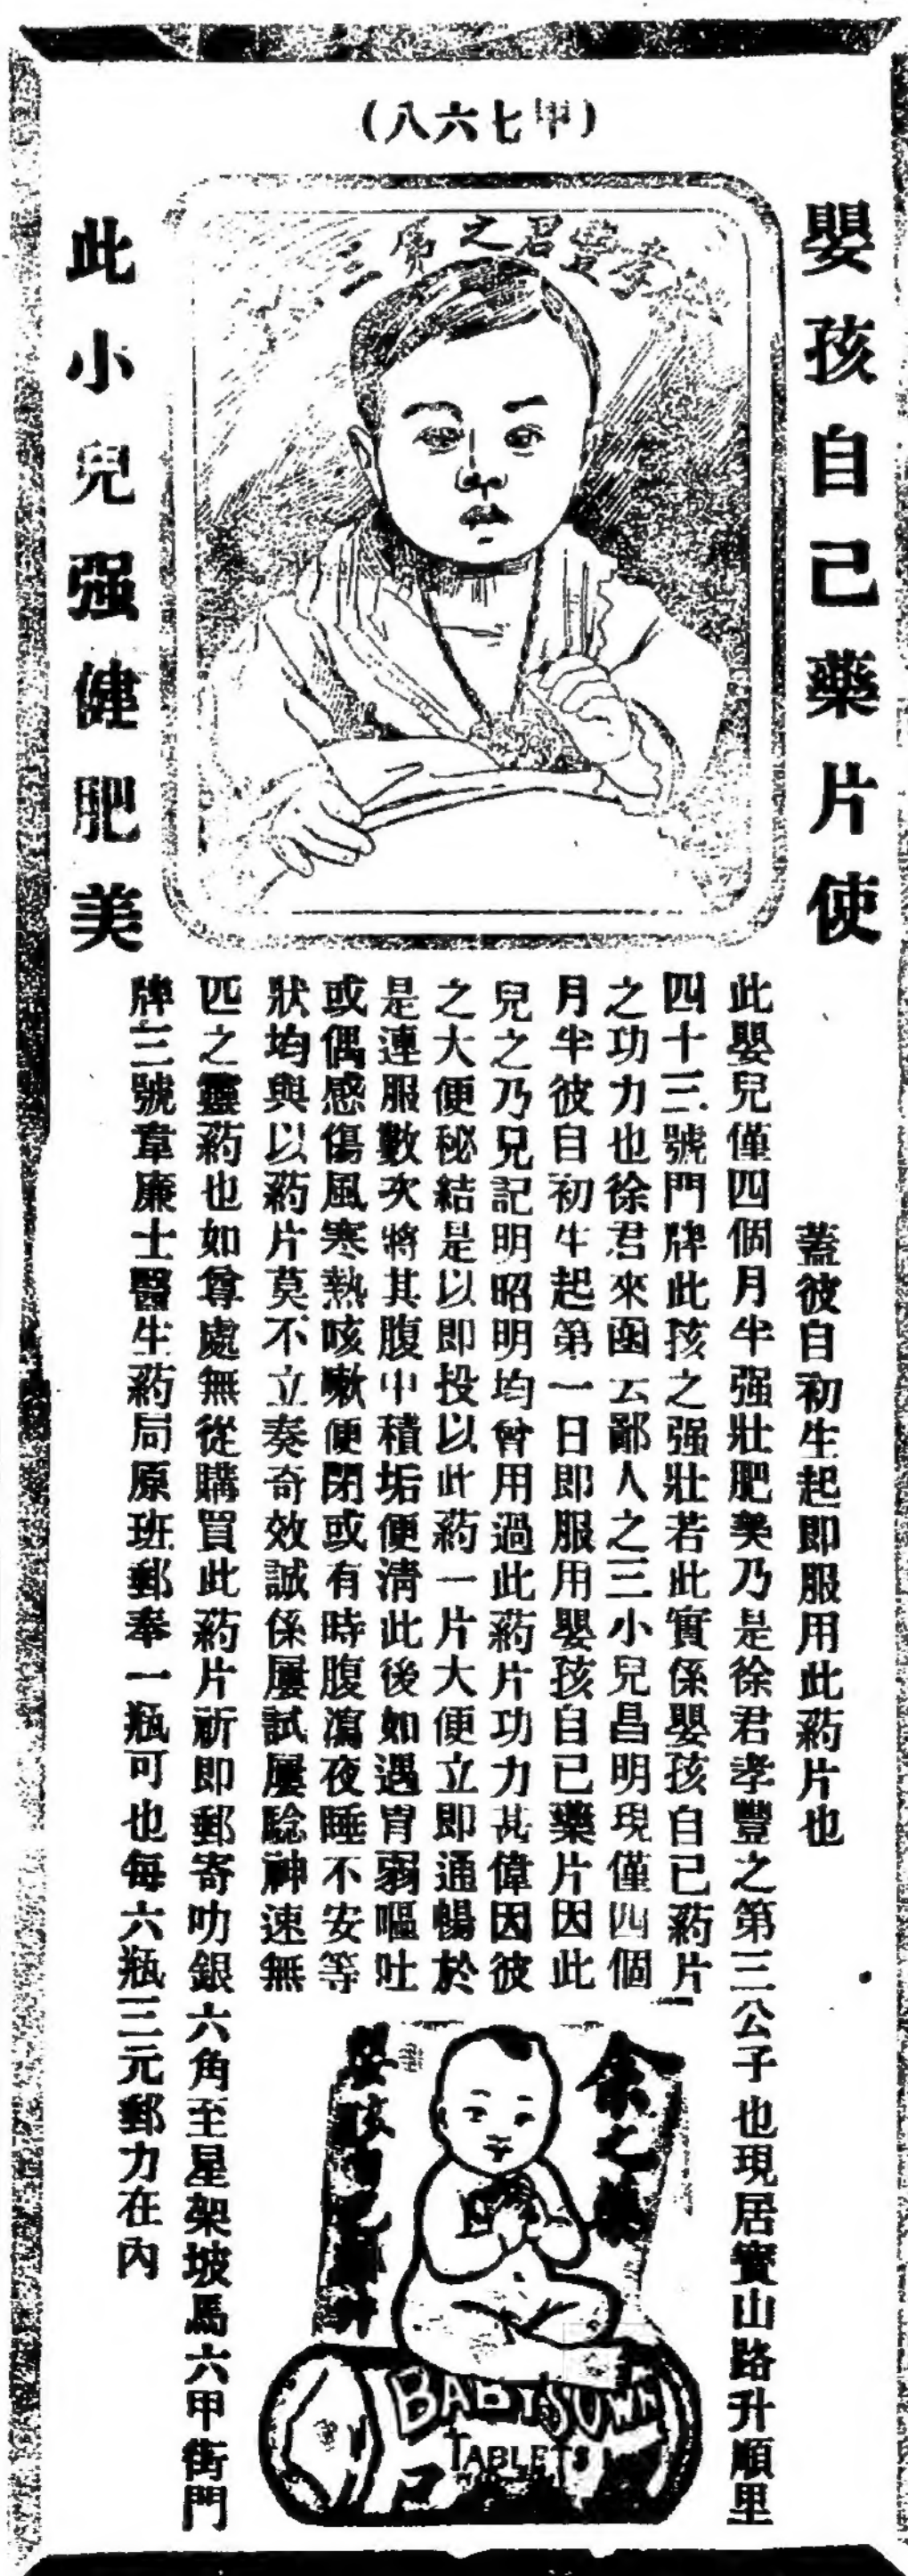 (甲七六八)
嬰孩自己藥片使
此小兒强健肥美
蓋彼自初生起即服用此葯片也
此嬰兒僅四個月半强壯肥美乃是徐君孝豐之第三公子也現居寶山路升順里
四十三號門牌此孩之强壯若此實係嬰孩自己葯片
之功力也徐君來函云鄙人之三小兒昌明現僅四個
月半彼自初生起第一日即服用嬰孩自己藥片因此
兒之乃兄記明昭明均曾用過此葯片功力甚偉因彼
之大便秘結是以即投以此葯一片大便立即通暢於
是連服數次將其腹中積垢便淸此後如遇胃弱嘔吐
或偶感傷風寒熱咳嗽便閉或有時腹瀉夜睡不安等
狀均與以葯片莫不立奏奇效誠係屢試屢騐神速無
匹之靈葯也如尊處無從購買此葯片祈即郵寄叻銀六角至星架坡馬六甲街門
牌三號韋廉士醫生葯局原班郵奉一瓶可也每六瓶三元郵力在內
嬰孩自己藥片
BABY'S OWN
TABLETS